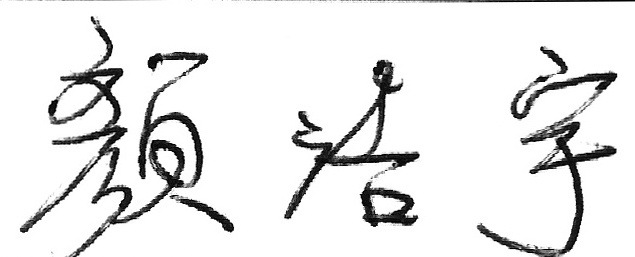 颜浩宇